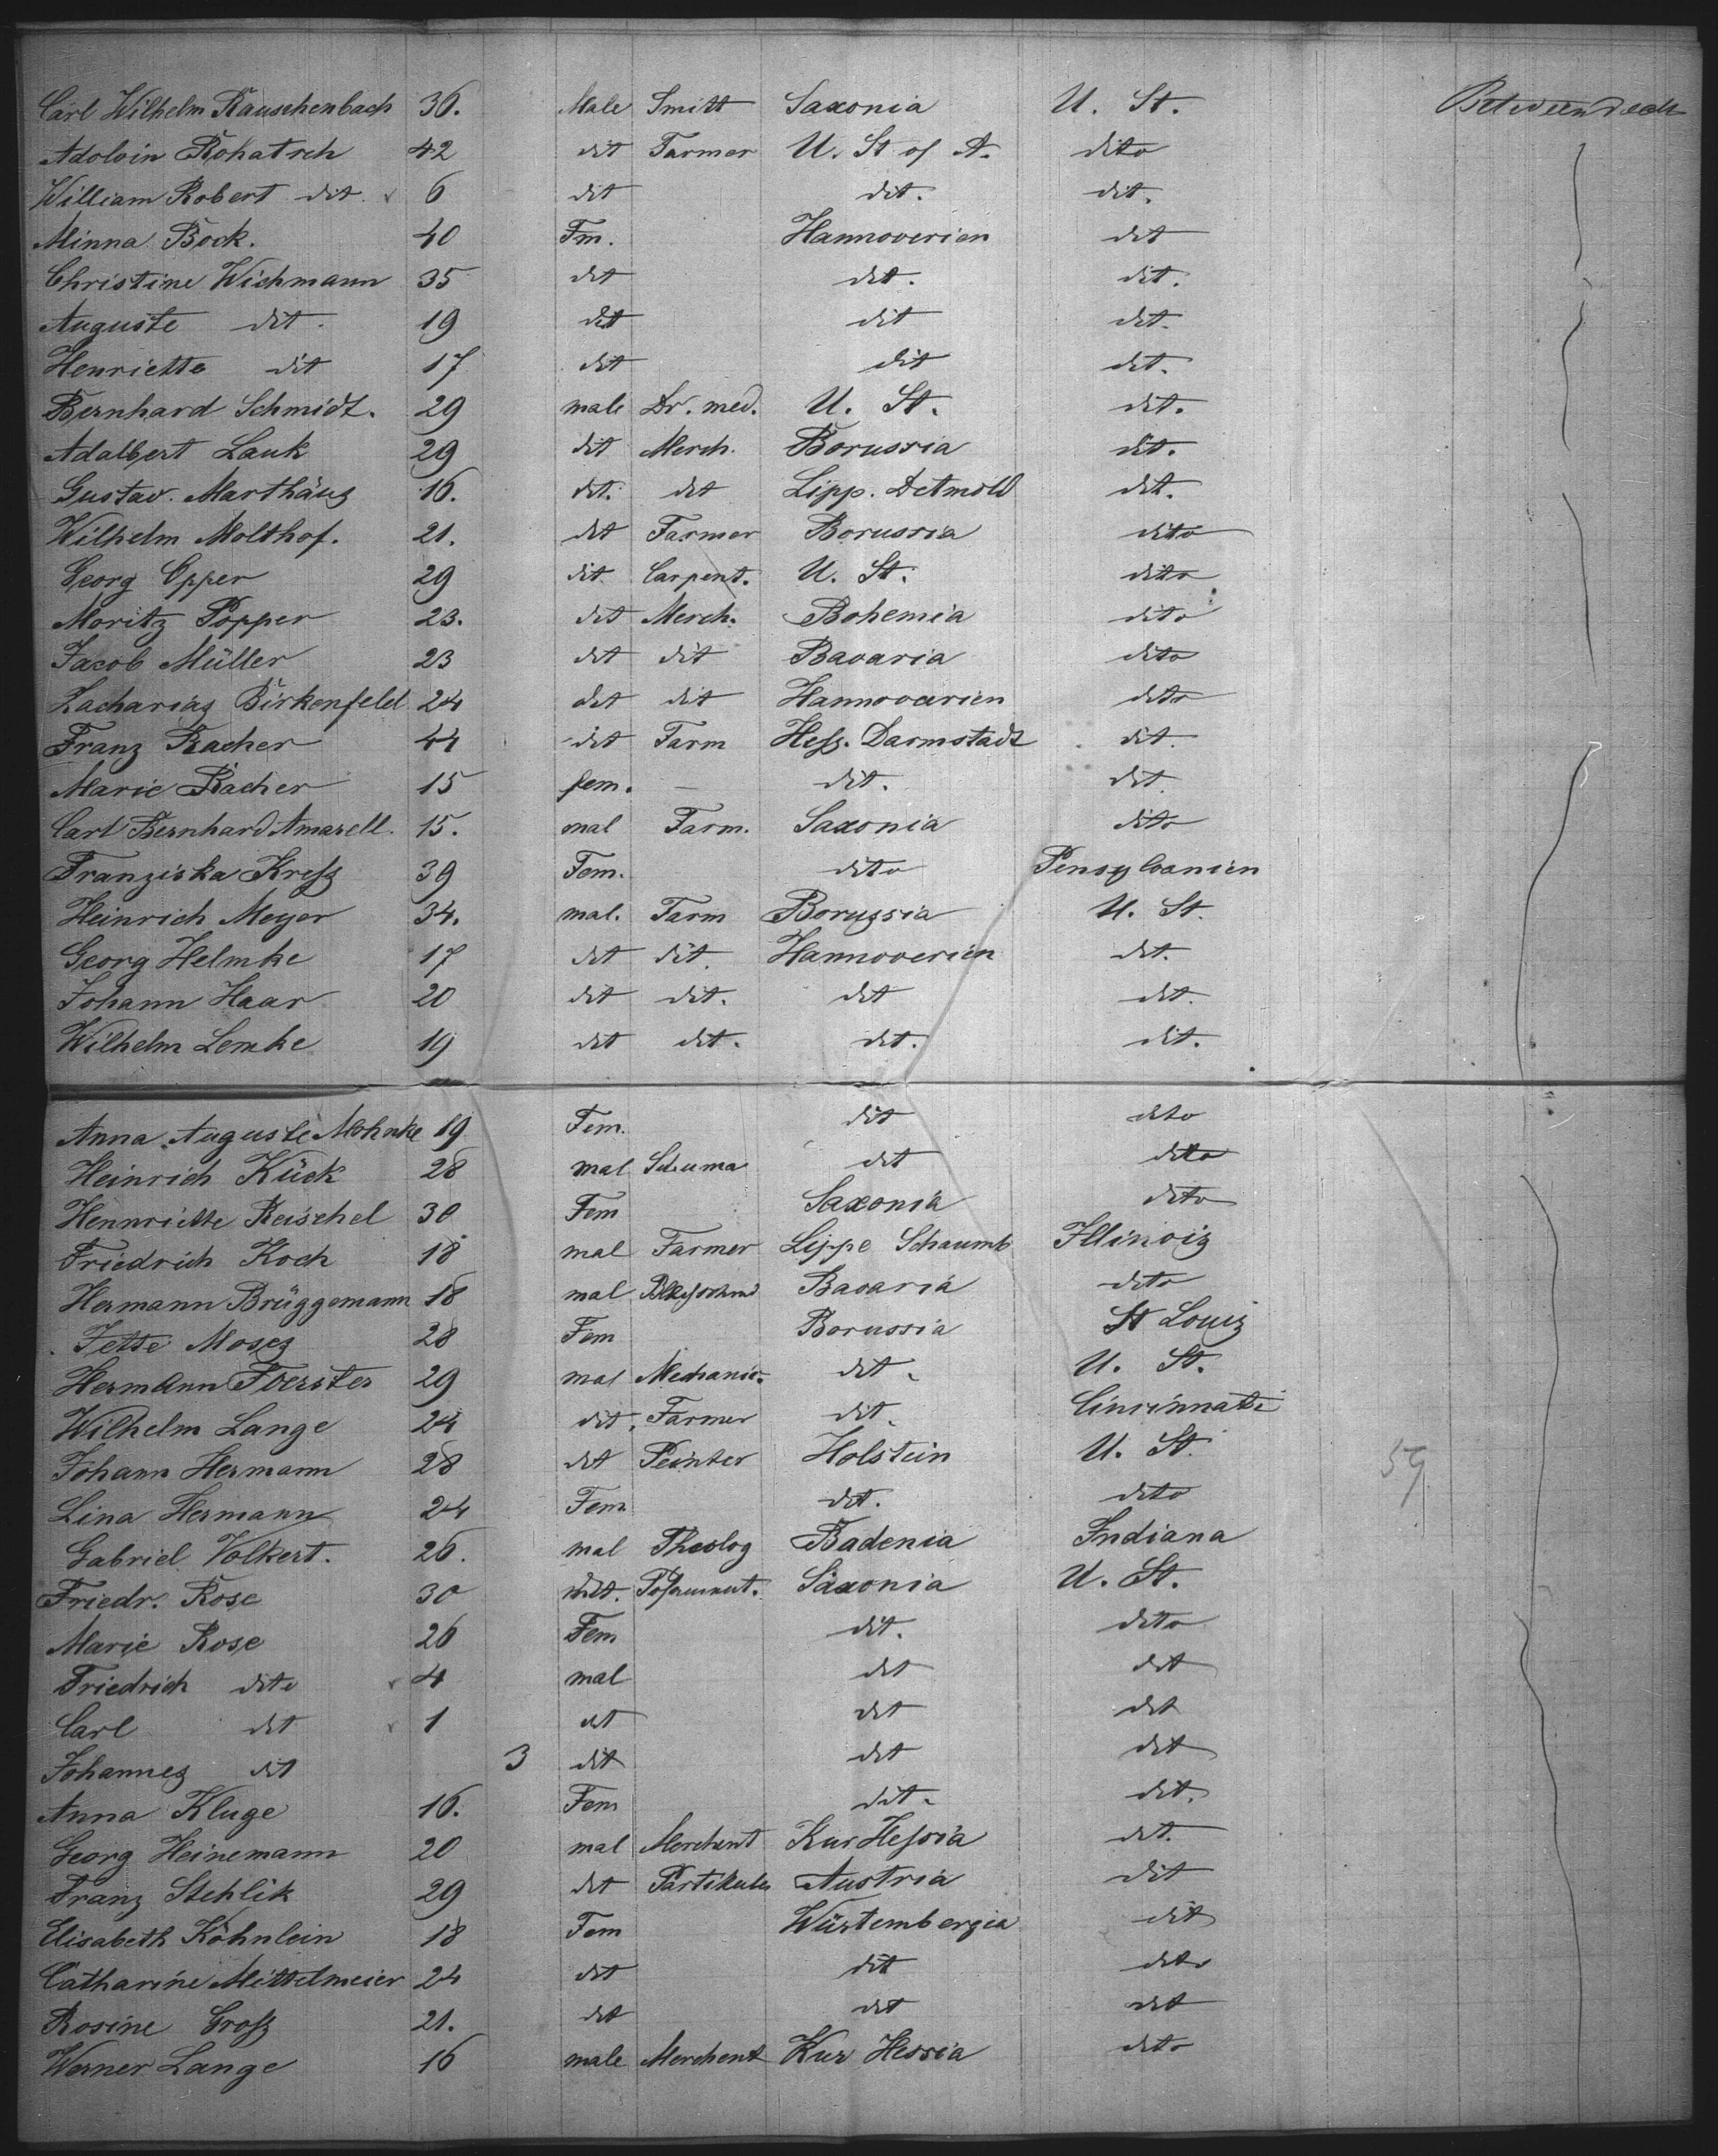 Carl Wilhelm Rauschenbach 36. Male Smitt Saxonia U. St. Between deck
Adolvin Rohatsch 42 dit Farmer U. St of A. dito
William Robert dit. 6 dit dit. dit.
Minna Bock. 40 Fm. Hannoverien dit
Christine Wichmann 35 dit dit. dit.
Auguste dit. 19 dit dit dit.
Henriette dit 17 dit dit dit.
Bernhard Schmidt. 29 male Dr. med. U. St. dit.
Adalbert Lauk 29 dit Merch. Borussia dit.
Gustav. Marthäus 16. dit. dit Lipp. Detmold dit.
Wilhelm Molthof. 21. dit Farmer Borussia dito
Georg Opper 29 dit Carpent. U. St. dito
Moritz Popper 23. dit Merch. Bohemia dito
Jacob Müller 23 dit dit Bavaria dito
Zacharias Birkenfeld 24 dit dit Hannoverien dito
Franz Racher 44 dit Farm Hess. Darmstadt dit.
Marie Racher 15 fem. — dit. dit.
Carl Bernhard Amarell. 15. mal Farm. Saxonia dito
Franziska Kress 39 Fem. dito Pensylvanien
Heinrich Meyer 34. mal. Farm Borussia U. St.
Georg Helmke 17 dit dit. Hannoverien dit.
Johann Haar 20 dit dit. dit dit.
Wilhelm Lemke 19 dit dit. dit. dit.
Anna Auguste Mohnke 19 Fem. dit dito
Heinrich Kück 28 mal dit dito
Hennriette Reischel 30 Fem Saxonia dito
Friedrich Koch 18 mal Farmer Lippe Schaumb Illinois
Hermann Brüggemann 18 mal Bavaria dito
Jette Moses 28 Fem Borussia St Louis
Hermann Foerster 29 mal Mechanic. dit. U. St.
Wilhelm Lange 24 dit. Farmer dit. Cincinnati
Johann Hermann 28 dit Peinter Holstein U. St.
59
Lina Hermann 24 Fem dit. dito
Gabriel Volkert. 26. mal Theolog Badenia Indiana
Friedr. Rose 30 dit. Posament. Saxonia U. St.
Marie Rose 26 Fem dit. dito
Friedrich dito 4 mal dit dit
Carl dit 1 dit dit dit
Johannes dit 3 dit dit dit
Anna Kluge 16. Fem dit. dit.
Georg Heinemann 20 mal Merchent Kur Hessia dit.
Franz Stehlik 29 dit Partikul Austria dit
Elisabeth Köhnlein 18 Fem Würtembergia dit
Catharine Mittelmeier 24 dit dit dito
Rosine Gross 21. dit dit dit
Werner Lange 16 male Merchent Kur Hessia dito